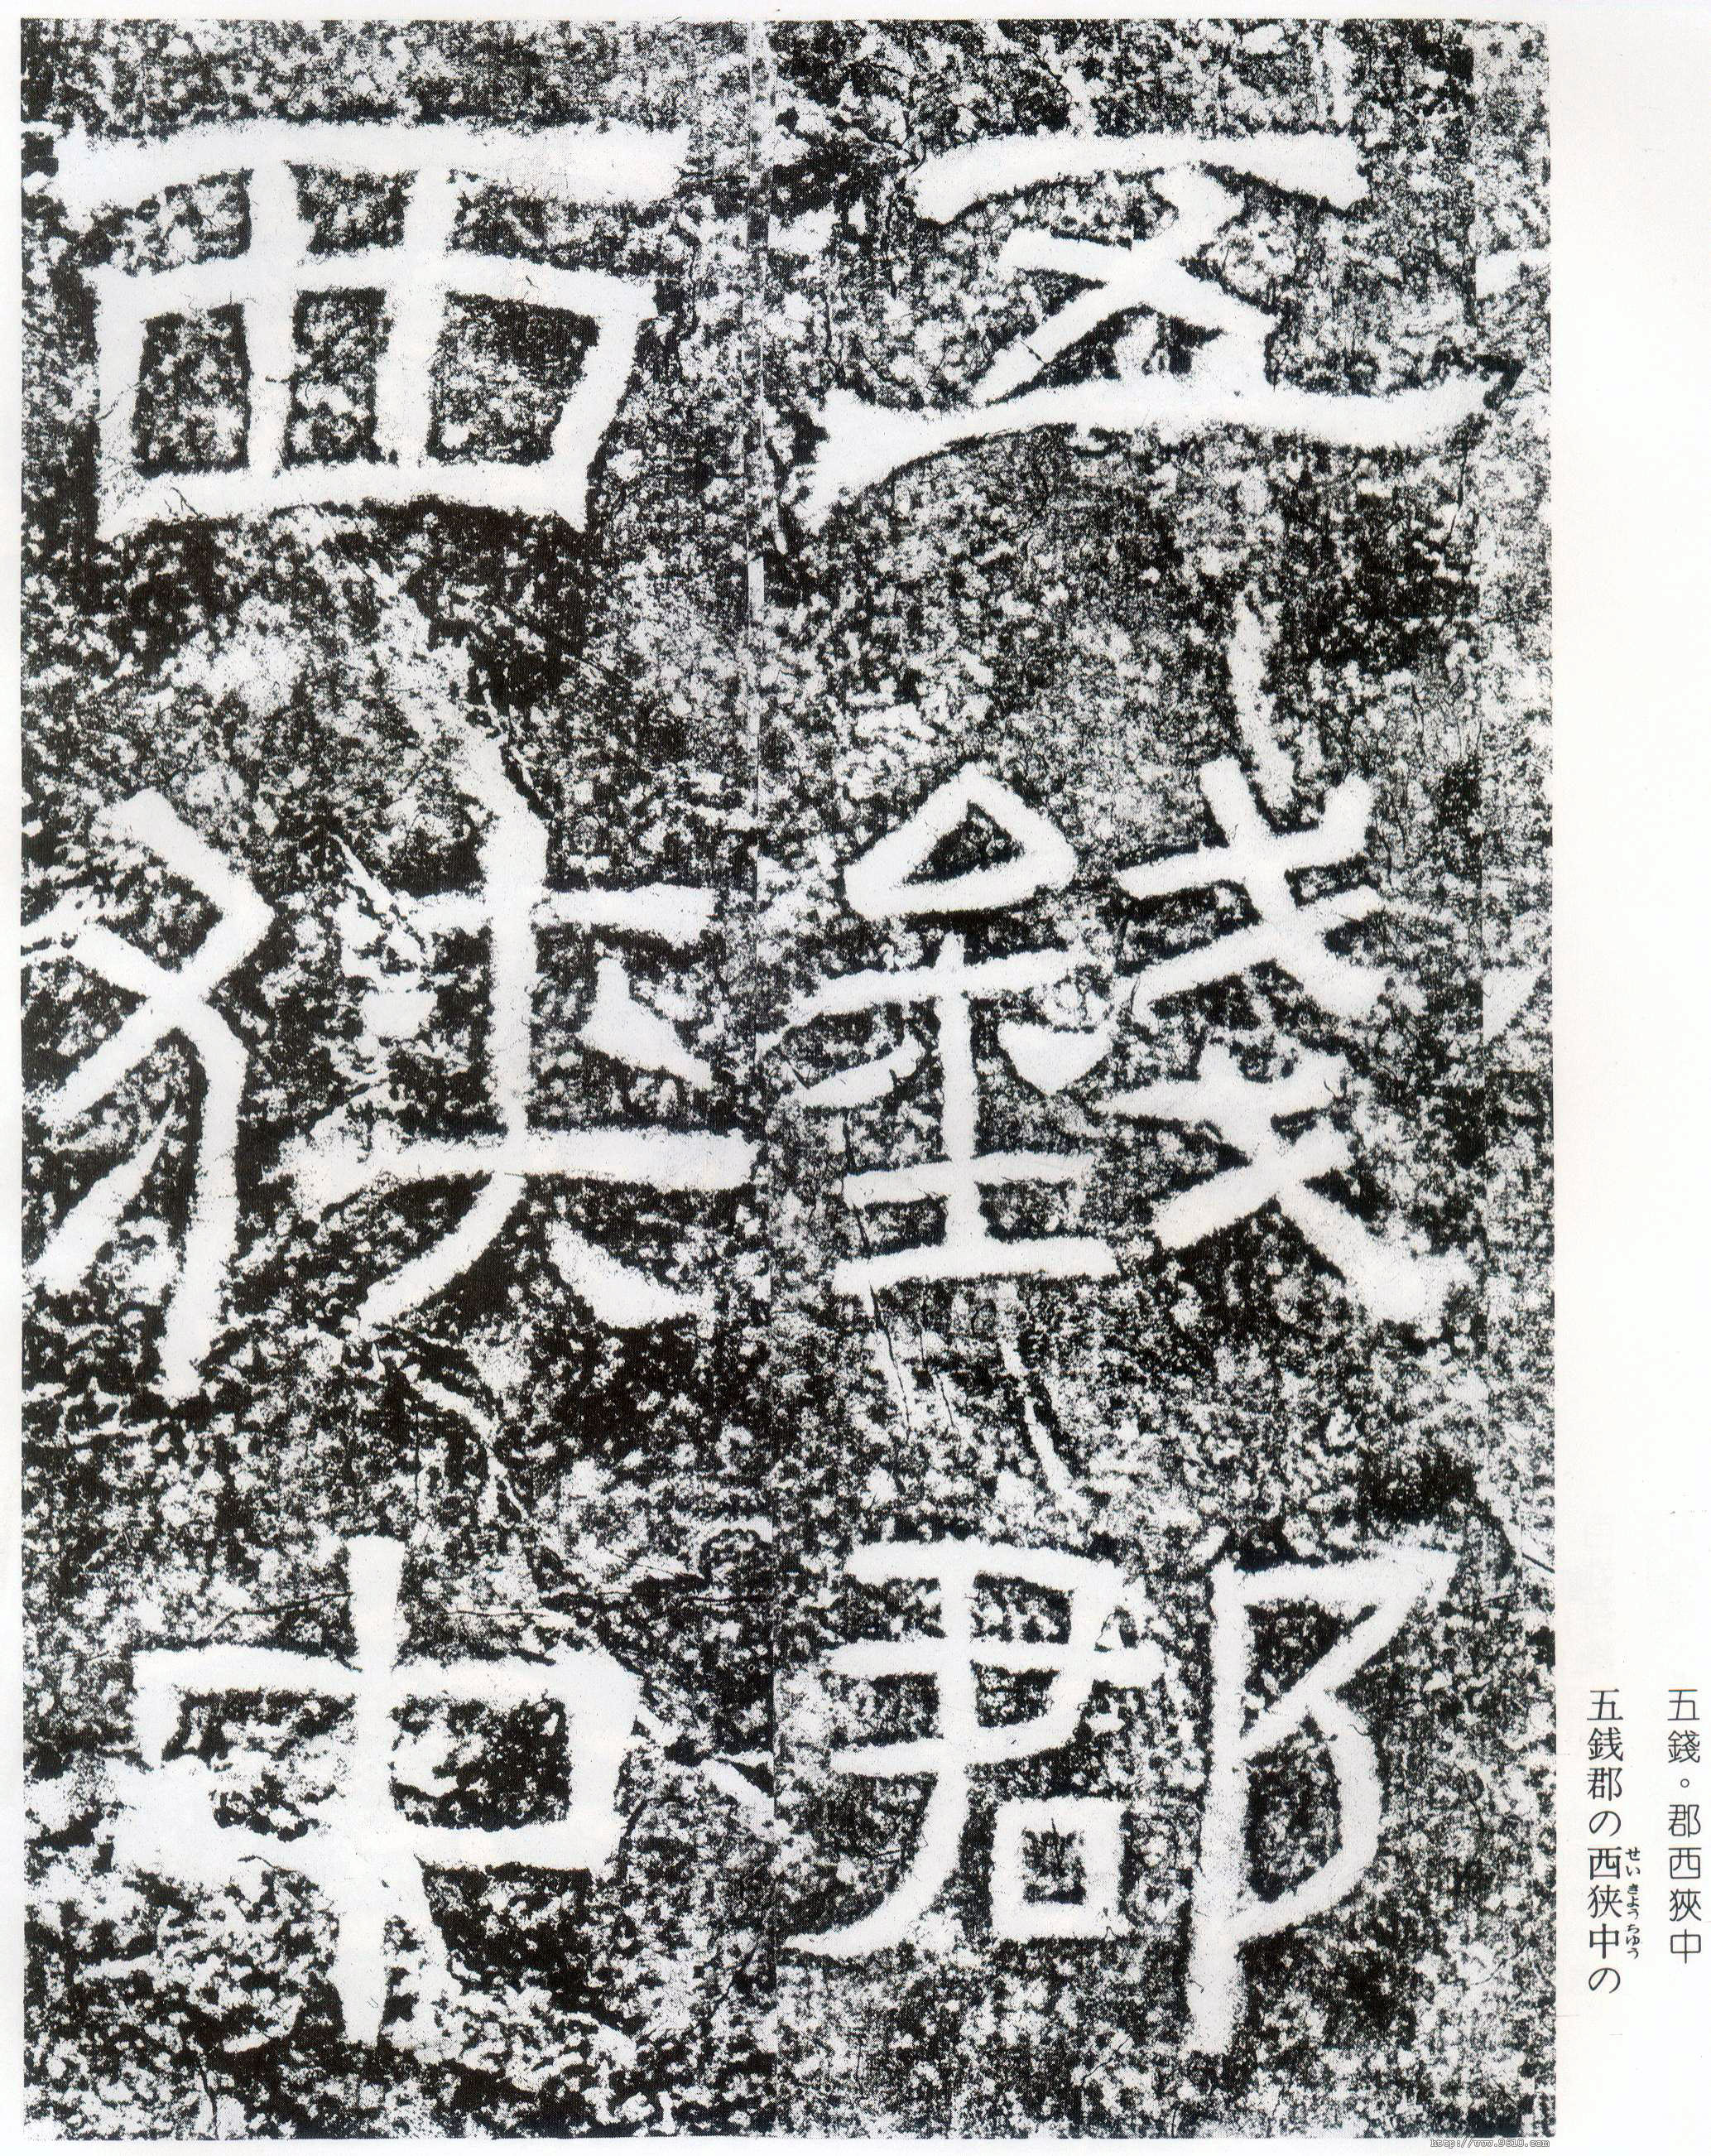 五錢郡
西狹中
五錢。郡西狹中
五銭郡の西狭中の
せいきようちゆう
http://www.9610.com